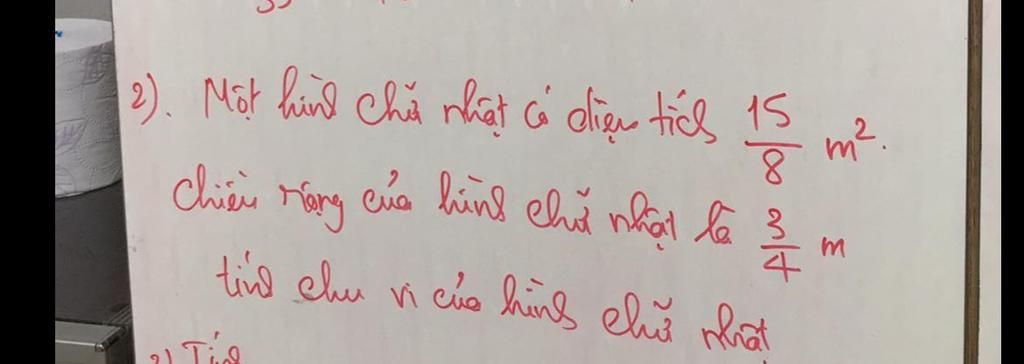 2). Một hình chữ nhật có diện tích 15/8 m².
chiều rộng của hình chữ nhật là 3/4 m
tính chu vi của hình chữ nhật
3) Tính